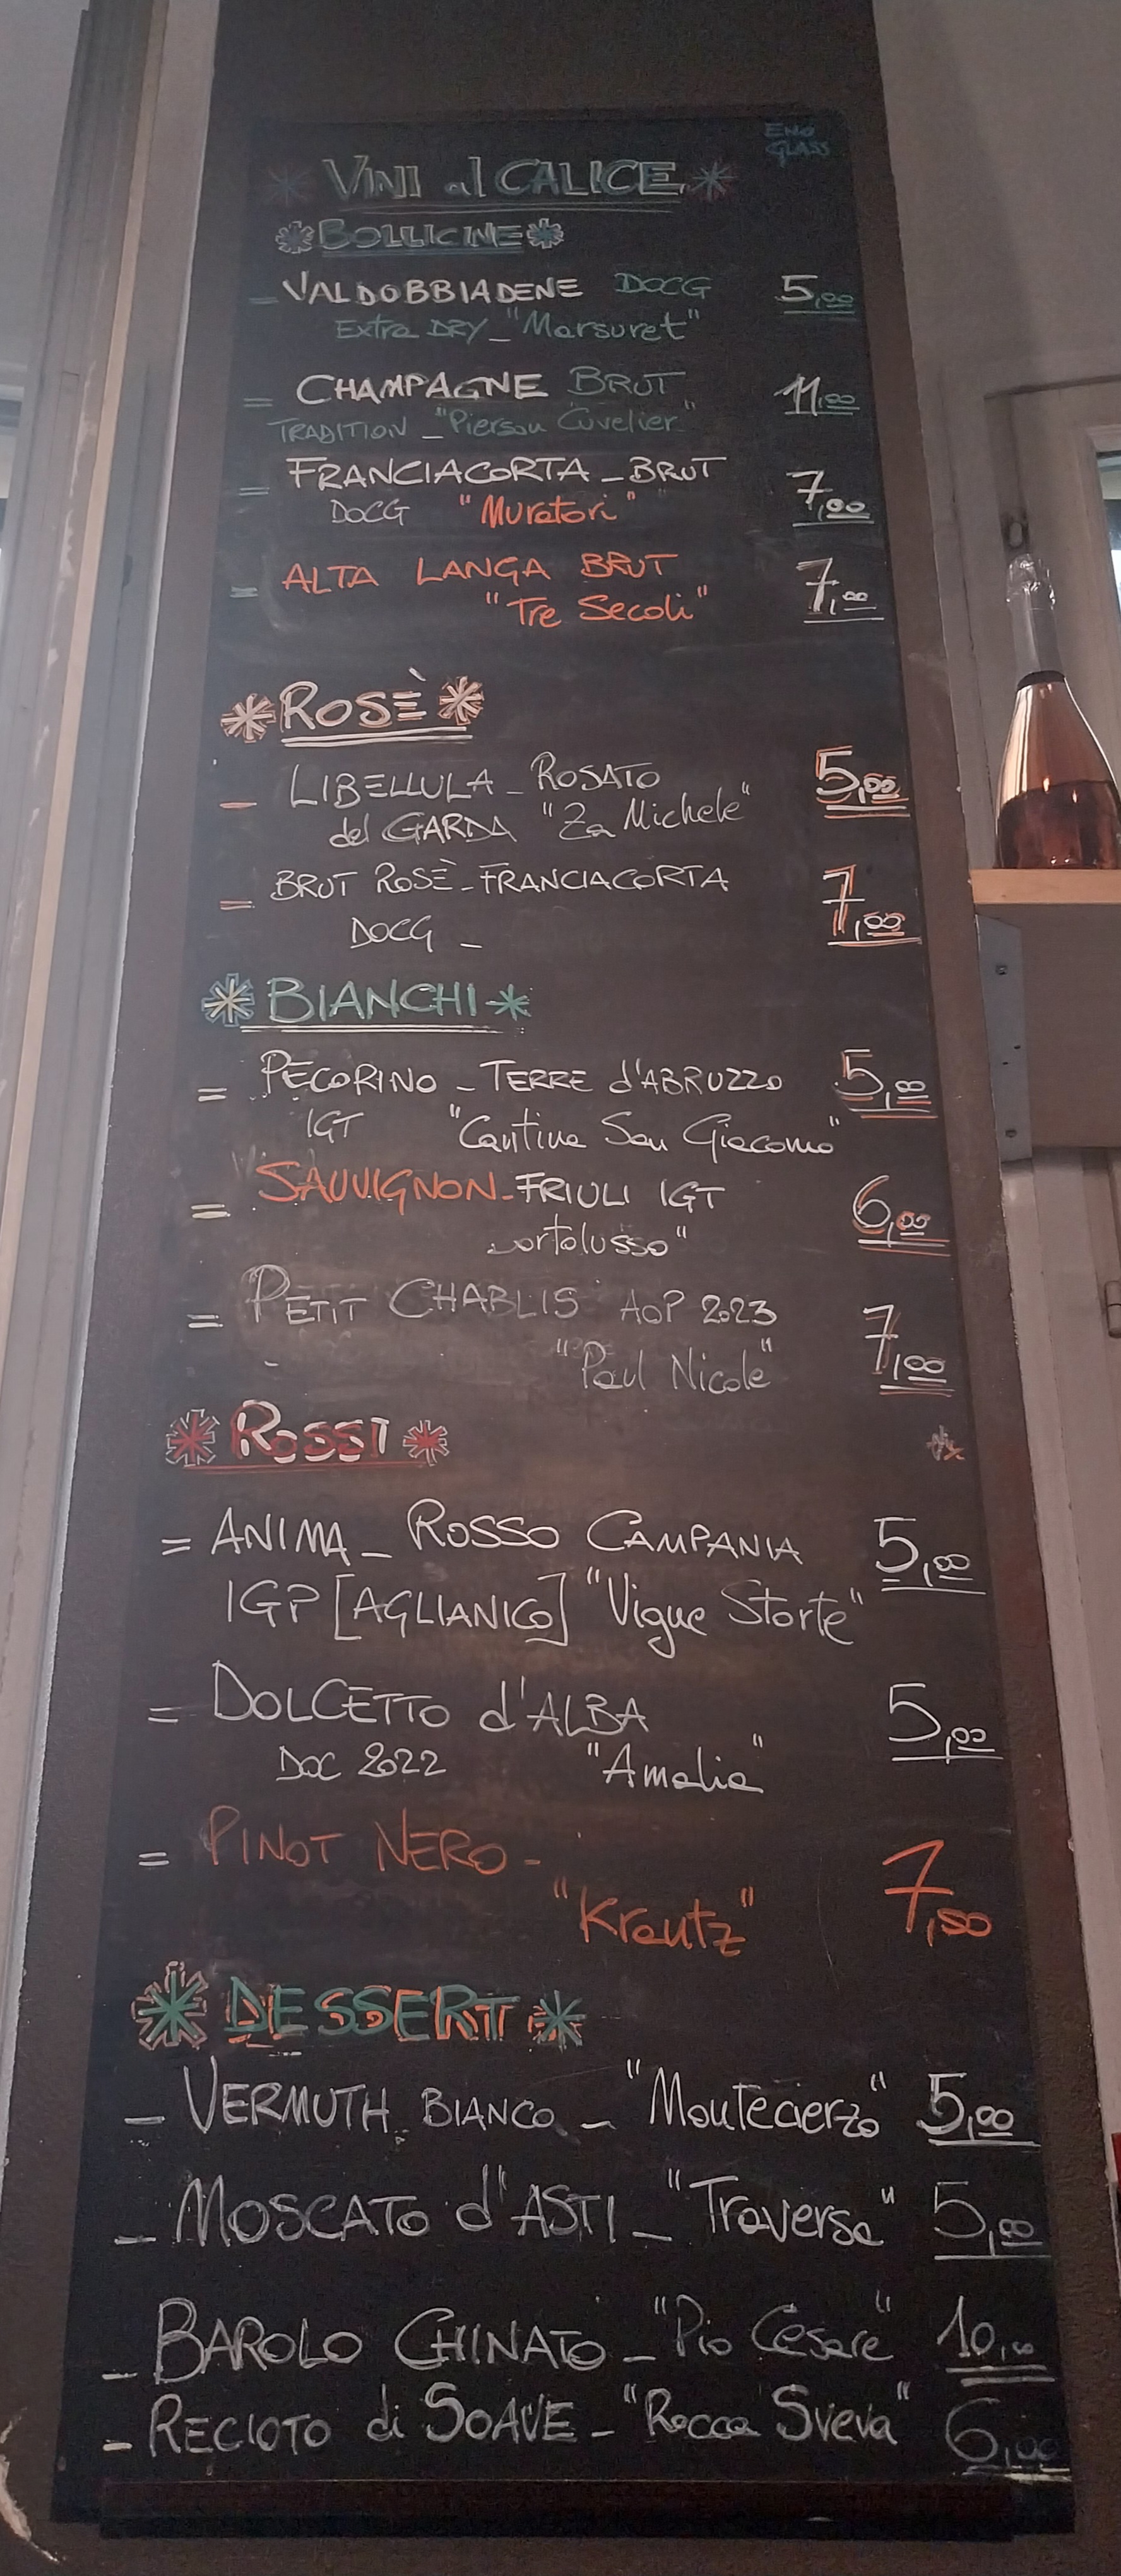 ENO
GLASS
* VINI al CALICE *
* BOLLICINE *
- VALDOBBIADENE DOCG 5,00
Extra DRY - "Marsuret"
= CHAMPAGNE BRUT 11,00
TRADITION - "Pierson Cuvelier"
= FRANCIACORTA - BRUT 7,00
DOCG "Muratori"
= ALTA LANGA BRUT 7,00
"Tre Secoli"
* ROSÈ *
- LIBELLULA - ROSATO 5,00
del GARDA "Za Michele"
= BRUT ROSÈ - FRANCIACORTA 7,00
DOCG -
* BIANCHI *
= PECORINO - TERRE d'ABRUZZO 5,00
IGT "Cantina San Giacomo"
= SAUVIGNON - FRIULI IGT 6,00
ortolusso"
= PETIT CHABLIS AOP 2023 7,00
"Paul Nicole"
* ROSSI *
= ANIMA - ROSSO CAMPANIA 5,00
IGP [AGLIANICO] "Vigne Storte"
= DOLCETTO d'ALBA 5,00
DOC 2022 "Amalia"
= PINOT NERO - 7,50
"Krautz"
* DESSERT *
- VERMUTH BIANCO - "Montecierzo" 5,00
- MOSCATO d'ASTI - "Traversa" 5,00
- BAROLO CHINATO - "Pio Cesare" 10,00
- RECIOTO di SOAVE - "Rocca Sveva" 6,00